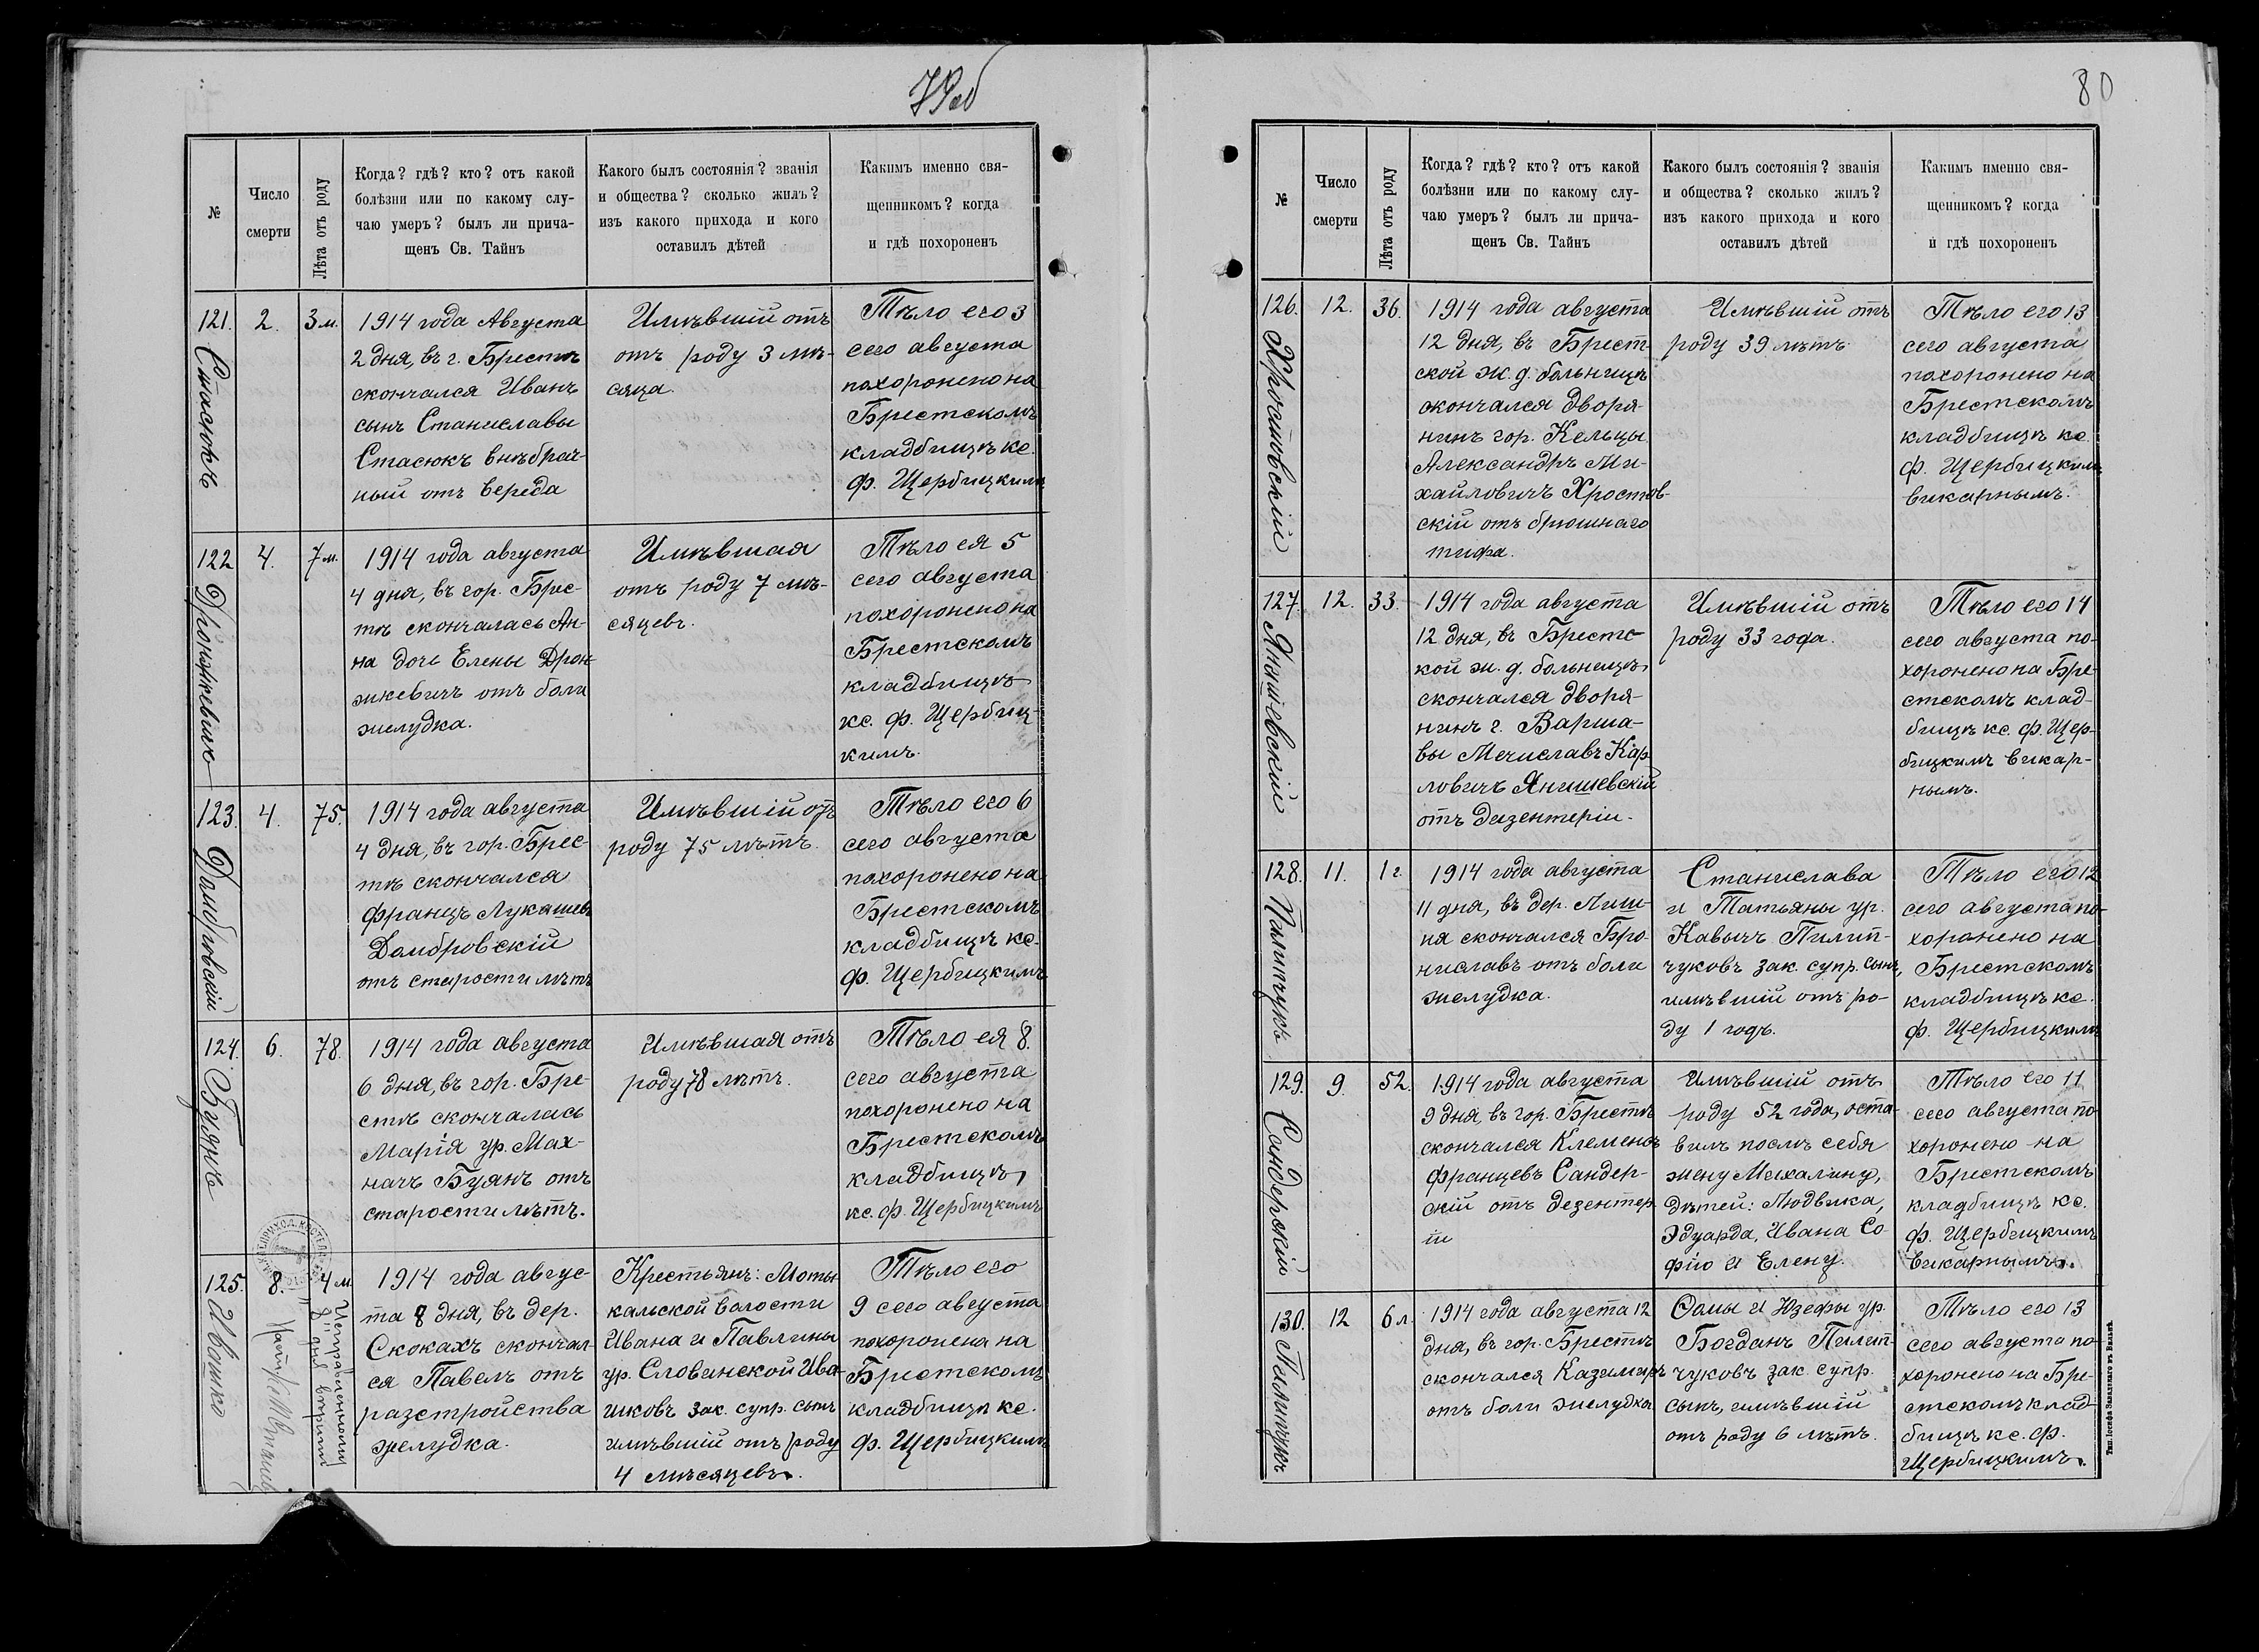 79об
№
Число
смерти
Лѣта отъ роду
Когда? гдѣ? кто? отъ какой
болѣзни или по какому слу-
чаю умеръ? былъ ли прича-
щенъ Св. Тайнъ
Какого былъ состоянія? званія
и общества? сколько жилъ?
изъ какого прихода и кого
оставилъ дѣтей
Какимъ именно свя-
щенникомъ? когда
и гдѣ похороненъ
121.
Стасюкъ
2.
3 м.
1914 года Августа
2 дня, въ г. Брестѣ
скончался Иванъ
сынъ Станиславы
Стасюкъ внѣбрач-
ный отъ вереда
Имѣвшій отъ
отъ роду 3 мѣ-
сяца.
Тѣло его 3
сего августа
похоронено на
Брестскомъ
кладбищѣ кс.
ф. Щербицкимъ
122
Дронжкевичъ
4.
7 м.
1914 года августа
4 дня, въ гор. Брес-
тѣ скончалась Ан-
на дочь Елены Дрон-
жкевичъ отъ боли
желудка.
Имѣвшая
отъ роду 7 мѣ-
сяцевъ.
Тѣло ея 5
сего августа
похоронено на
Брестскомъ
кладбищѣ
кс. ф. Щербиц-
кимъ.
123.
Домбровскій
4.
75.
1914 года августа
4 дня, въ гор. Брес-
тѣ скончался
Францъ Лукашевъ
Домбровскій
отъ старости лѣтъ
Имѣвшій отъ
роду 75 лѣтъ.
Тѣло его 6
сего августа
похоронено на
Брестскомъ
кладбищѣ кс.
ф. Щербицкимъ
124.
Буянъ
6.
78.
1914 года августа
6 дня, въ гор. Бре-
стѣ скончалась
Марія ур. Мах-
начъ Буянъ отъ
старости лѣтъ.
Имѣвшая отъ
роду 78 лѣтъ.
Тѣло ея 8.
сего августа
похоронено на
Брестскомъ
кладбищѣ
кс. ф. Щербицкимъ
125.
Ивашко
8.
4 м
Исправленному
"8" дня вѣрить
1914 года авгус-
та 8 дня, въ дер.
Скокахъ скончал-
ся Павелъ отъ
разстройства
желудка.
Крестьянъ: Моты-
кальской волости
Ивана и Павлины
ур. Словинской Ива-
шковъ зак. супр. сынъ
имѣвшій отъ роду
4 мѣсяцевъ.
Тѣло его
9 сего августа
похоронена на
Брестскомъ
кладбищѣ кс.
ф. Щербицкимъ
80
№
Число
смерти
Лѣта отъ роду
Когда? гдѣ? кто? отъ какой
болѣзни или по какому слу-
чаю умеръ? былъ ли прича-
щенъ Св. Тайнъ
Какого былъ состоянія? званія
и общества? сколько жилъ?
изъ какого прихода и кого
оставилъ дѣтей
Какимъ именно свя-
щенникомъ? когда
и гдѣ похороненъ
126.
Хростовскій
12.
36.
1914 года августа
12 дня, въ Брест-
ской ж. д. больницѣ
скончался дворя-
нинъ гор. Кельцы
Александръ Ми-
хайловичъ Хростов-
скій отъ брюшнаго
тифа.
Имѣвшій отъ
роду 39 лѣтъ
Тѣло его 13
сего августа
похоронено на
Брестскомъ
кладбищѣ кс.
ф. Щербицкимъ
викарнымъ.
127.
Янишевскій
12.
33.
1914 года августа
12 дня, въ Брестс-
кой ж. д. больницѣ
скончался дворя-
нинъ г. Варша-
вы Мечиславъ Кар-
ловичъ Янишевскій
отъ дизентеріи.
Имѣвшій отъ
роду 33 года.
Тѣло его 14
сего августа по-
хоронено на Бре-
стскомъ клад-
бищѣ кс. ф. Щер-
бицкимъ викар-
нымъ.
128.
Пилипчукъ
11.
1 г.
1914 года августа
11 дня, въ дер. Лиш-
ня скончался Бро-
ниславъ отъ боли
желудка.
Станислава
и Татьяны ур.
Кавычъ Пилип-
чуковъ зак. супр. сынъ,
имѣвшій отъ ро-
ду 1 годъ.
Тѣло его 12
сего августа по-
хоронено на
Брестскомъ
кладбищѣ кс.
ф. Щербицкимъ
129.
Сандерскій
9.
52.
1914 года августа
9 дня, въ гор. Брестѣ
скончался Клеменсъ
Францевъ Сандер-
скій отъ дезентер-
іи
Имѣвшій отъ
роду 52 года, оста-
вилъ послѣ себя
жену Михалину,
дѣтей: Людвика,
Эдуарда, Ивана Со-
фію и Елену.
Тѣло его 11
сего августа по-
хоронено на
Брестскомъ
кладбищѣ кс.
ф. Щербицкимъ
викарнымъ.
130.
Пилипчукъ
12
6 л.
1914 года августа 12
дня, въ гор. Брестѣ
скончался Казимиръ
отъ боли желудка
Ѳомы и Юзефы ур.
Богданъ Пилип-
чуковъ зак. супр.
сынъ, имѣвшій
отъ роду 6 лѣтъ.
Тѣло его 13
сего августа по-
хоронено на Бре-
стскомъ клад-
бищѣ кс. ф.
Щербицкимъ.
Тип. Іосифа Завадзкаго въ Вильнѣ.